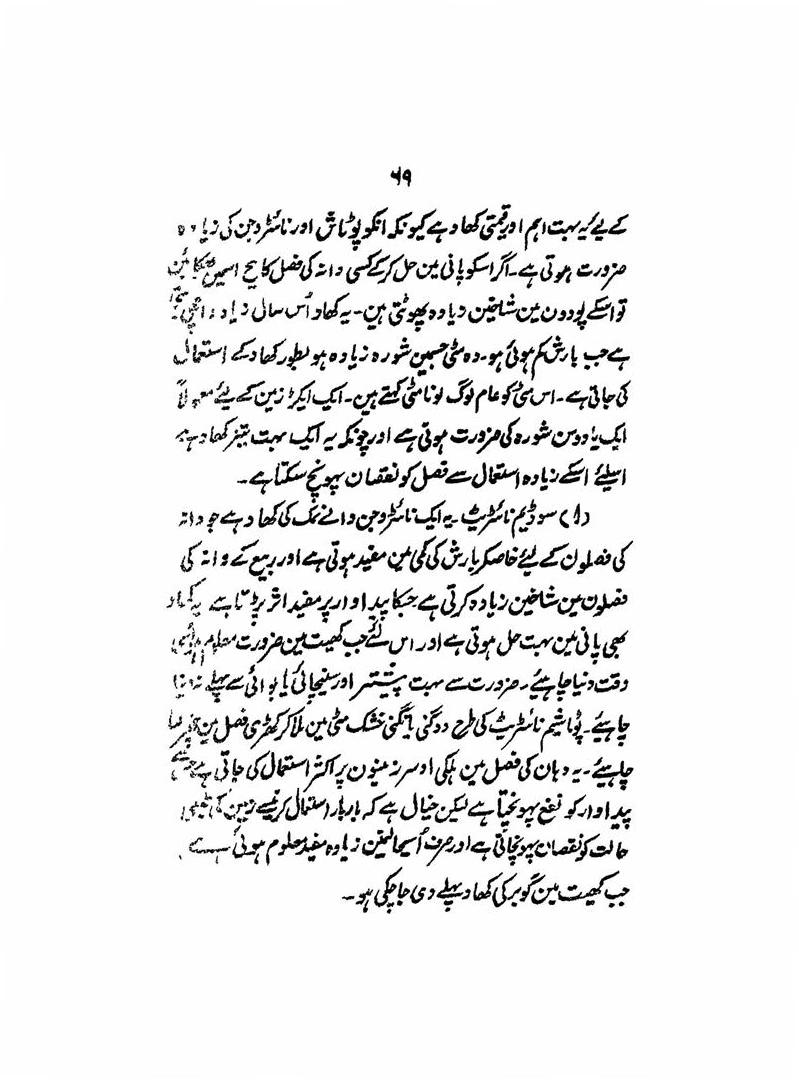 ۶۹
کے لیے یہ بہت اہم اور قیمتی کھاد ہے کیونکہ انکو پوٹاش اور نائٹروجن کی زیادہ
ضرورت ہوتی ہے۔ اگر اسکو پانی مین حل کرکے کسی دانہ کی فصل کا بیج اسمین
تو اسکے پودون مین شاخین زیادہ پھوٹتی ہین۔ یہ کھاد اُس سال زیادہ اچھی
ہے جب بارش کم ہوئی ہو۔ وہ مٹی جسمین شورہ زیادہ ہو بطور کھاد کے استعمال
کی جاتی ہے۔ اس مٹی کو عام لوگ لونا مٹی کہتے ہین۔ ایک ایکڑ زمین کے لیئے معمولاً
ایک یا دو من شورہ کی ضرورت ہوتی ہے اور چونکہ یہ ایک بہت تیز کھاد ہے
اسلیئے اسکے زیادہ استعمال سے فصل کو نقصان پہونچ سکتا ہے۔
سوڈیم نائٹریٹ۔ یہ ایک نائٹروجن والے نمک کی کھاد ہے جو دانہ
کی فصلون کے لیئے خاصکر بارش کی کمی مین مفید ہوتی ہے اور ربیع کے دانہ کی
فصلون مین شاخین زیادہ کرتی ہے جسکا پیداوار پر مفید اثر پڑتا ہے یہ کھاد
بھی پانی مین بہت حل ہوتی ہے اور اس لئے جب کھیت مین ضرورت معلوم ہو اُسی
وقت دینا چاہیئے۔ ضرورت سے بہت پیشتر اور سنیچائی یا بوائی سے پہلے نہ دینا
چاہیئے۔ پوٹاشیم نائٹریٹ کی طرح دوگنی یا تگنی خشک مٹی مین ملا کر کھڑی فصل مین
چاہیئے۔ یہ دہان کی فصل مین ہلکی اوسر زمینون پر اکثر استعمال کی جاتی ہے جس سے
پیداوار کو نفع پہونچتا ہے لیکن خیال ہے کہ بار بار استعمال کرنیسے زمین کی طبعی
حالت کو نقصان پہونچاتی ہے اور صرف اُسیحالتمین زیادہ مفید معلوم ہوئی ہے
جب کھیت مین گوبر کی کھاد پہلے دی جا چکی ہو۔